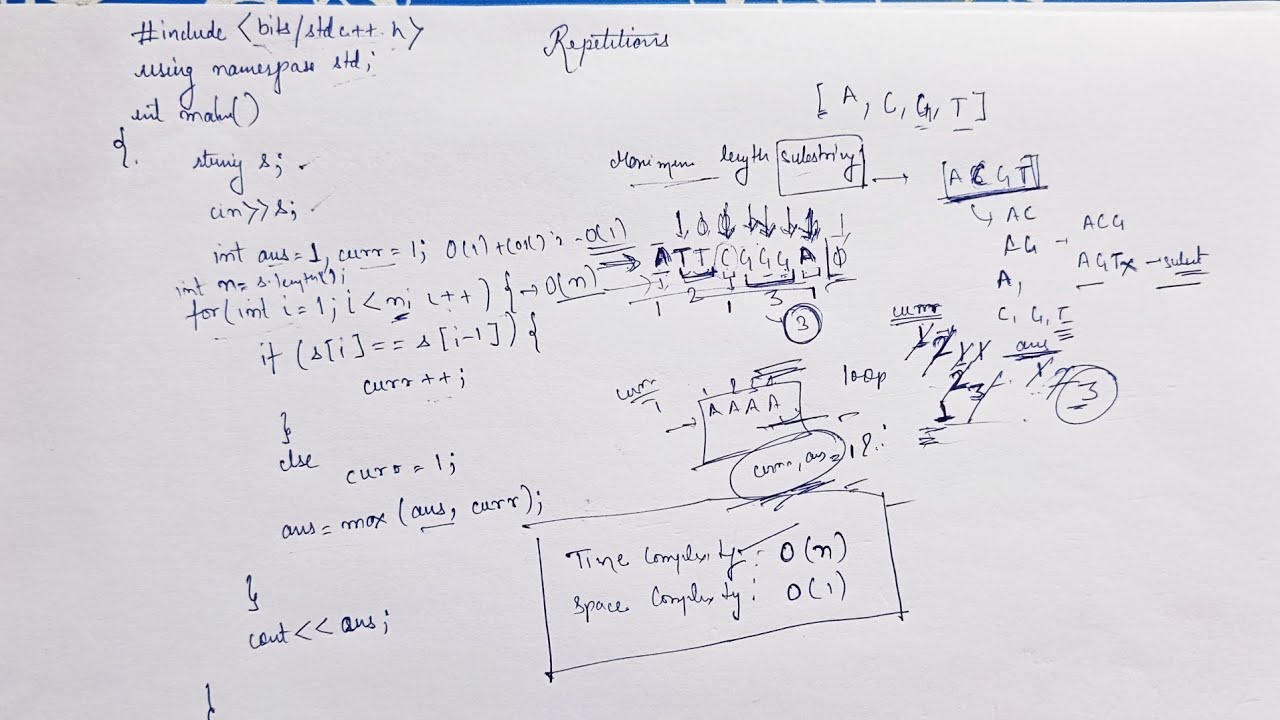 #include <bits/stdc++.h>
using namespace std;
int main()
{
string s;
cin>>s;
int ans=1, curr=1; O(1)+O(1) = O(1)
int n= s.length();
for(int i=1; i<n; i++) { → O(n)
if (s[i]==s[i-1]) {
curr++;
}
else
curr=1;
ans=max(ans, curr);
}
cout<<ans;
}
Repetitions
[A, C, G, T]
Maximum length substring → [ACGT]
AC
AG - ACG
A, AGTx → subset
C, G, T
ATTCGGGA
1 2 1 3 1
3
curr
ans
2
1 2 3
3
curr
1
AAAA
loop
curr, ans = 1
Time Complexity: O(n)
Space Complexity: O(1)